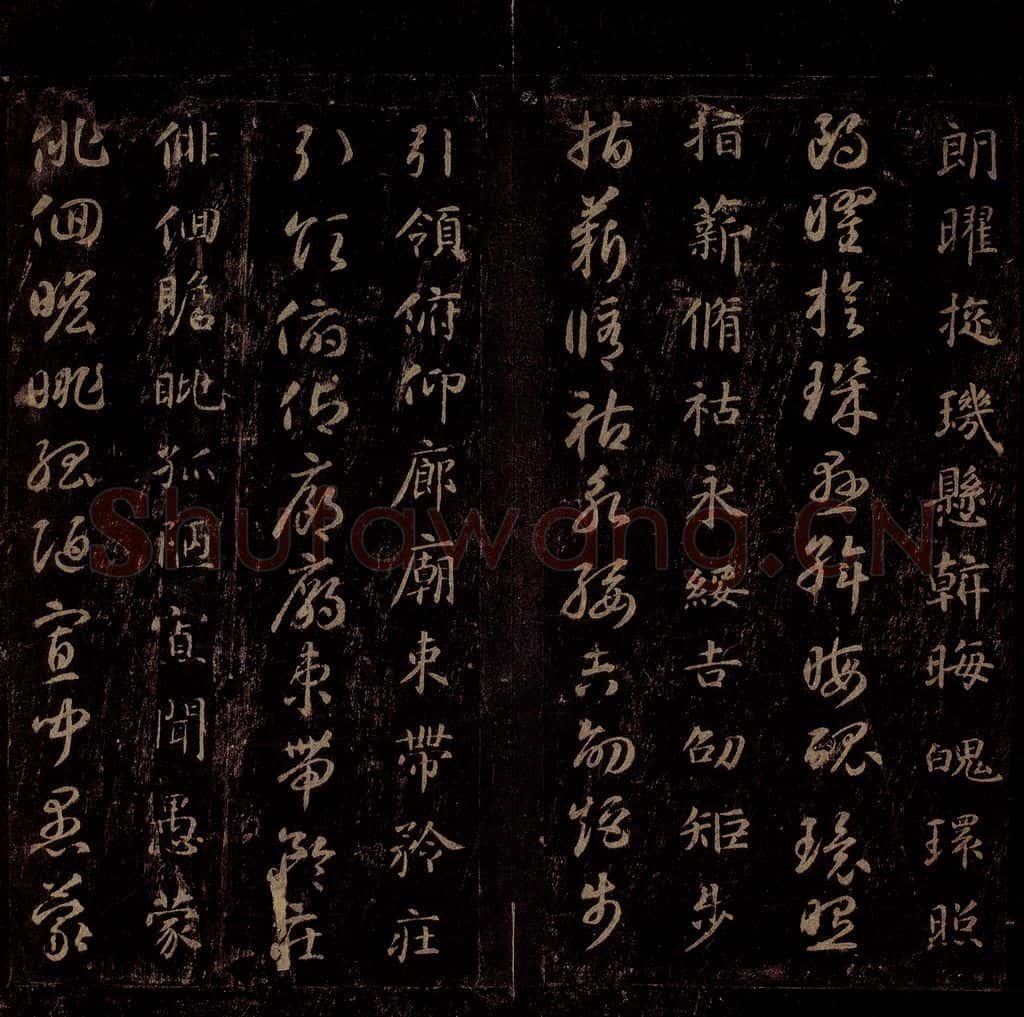 朗曜旋璣懸斡晦魄環照
朗曜旋璣懸斡晦魄環照
指薪脩祜永綏吉劭矩步
指薪脩祜永綏吉劭矩步
引領俯仰廊廟束帶矜莊
引領俯仰廊廟束帶矜莊
俳佪瞻眺孤陋寡聞愚蒙
俳佪瞻眺孤陋寡聞愚蒙
Shufawang.CN